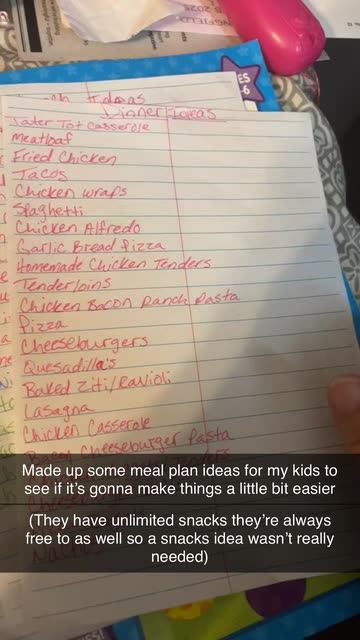 ES
-6
Ideas
Dinner Ideas
Tater Tot Casserole
Meatloaf
Fried Chicken
Tacos
Chicken Wraps
Spaghetti
Chicken Alfredo
Garlic Bread Pizza
Homemade Chicken Tenders
Tenderloins
Chicken Bacon Ranch Pasta
Pizza
Cheeseburgers
Quesadilla's
Baked Ziti/Ravioli
Lasagna
Chicken Casserole
Bacon Cheeseburger Pasta
Made up some meal plan ideas for my kids to
see if it's gonna make things a little bit easier
(They have unlimited snacks they're always
free to as well so a snacks idea wasn't really
needed)